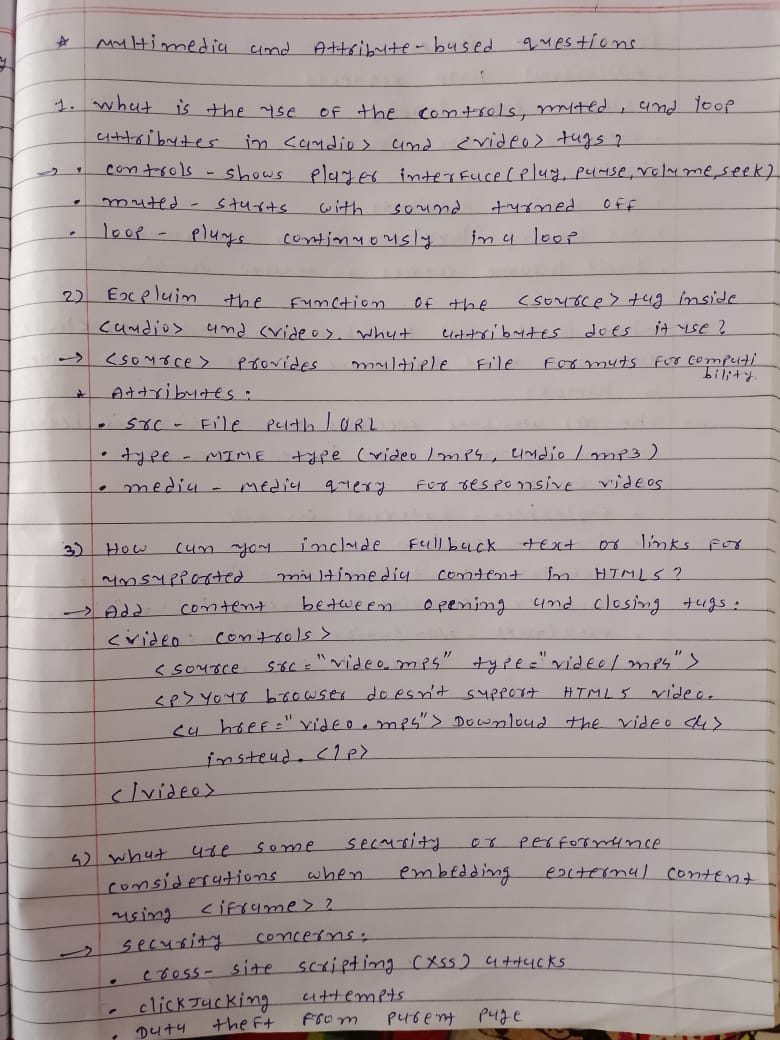 * Multimedia and Attribute-based questions
1. What is the use of the controls, muted, and loop
attributes in <audio> and <video> tags?
→ • controls - shows player interface (play, pause, volume, seek)
• muted - starts with sound turned off
• loop - plays continuously in a loop
2) Explain the function of the <source> tag inside
<audio> and <video>. What attributes does it use?
→ <source> provides multiple file formats for compati
bility.
* Attributes:
• src - File path / URL
• type - MIME type (video/mp4, audio/mp3)
• media - media query for responsive videos
3) How can you include fallback text or links for
unsupported multimedia content in HTML5?
→ Add content between opening and closing tags:
<video controls>
<source src="video.mp4" type="video/mp4">
<p>your browser doesn't support HTML5 video.
<a href="video.mp4">Download the video </a>
instead. </p>
</video>
4) what are some security or performance
considerations when embedding external content
using <iframe>?
→ security concerns:
• cross-site scripting (XSS) attacks
• clickjacking attempts
• Data theft from parent page